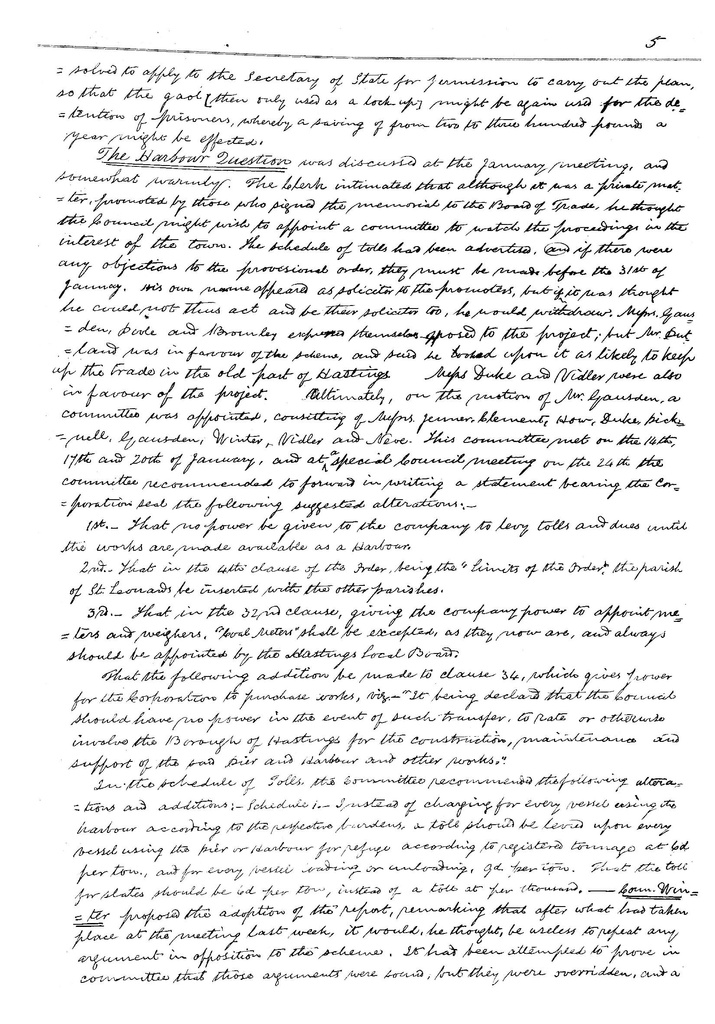 5
=solved to apply to the Secretary of State for permission to carry out the plan,
so that the gaol [then only used as a lock up] might be again used for the de=
=tention of prisoners, whereby a saving of from two to three hundred pounds a
year might be effected.
The Harbour Question was discussed at the January meeting, and
somewhat warmly. The Clerk intimated that although it was a private mat=
=ter, promoted by those who signed the memorial to the Board of Trade, he thought
the Council might wish to appoint a committee to watch the procedings in the
interest of the town. The schedule of tolls had been advertised, and if there were
any objections to the provisional order, they must be made before the 31st of
January. His own name appeared as solicitor to the promoters, but if it was thought
he could not thus act and be their solicitor too, he would withdraw. Messrs. Gaus=
=den, Poole and Bromley expressed themselves opposed to the project; but Mr. But=
=land was in favour of the scheme, and said he looked upon it as likely to keep
up the trade in the old part of Hastings Messrs Duke and Vidler were also
in favour of the project. Ultimately, on the motion of Mr. Gausden, a
committee was appointed, consitting of Messrs. Jenner, Clement, How, Duke, Bick=
=nell, Gausden, Winter, Vidler and Neve. This committee met on the 14th,
17th and 20th of January, and at a special Council meeting on the 24th the
committee recommended to forward in writing a statement bearing the Cor=
=poration seal the following suggested alterations.—
1st.— That no power be given to the company to levy tolls and dues until
the works are made available as a Harbour.
2nd.— That in the 4th clause of the Order, being the "limits of the Order", the parish
of St. Leonards be inserted with the other parishes.
3rd.— That in the 32nd clause, giving the company power to appoint me=
=ters and weighers, "Coal Meters" shall be excepted, as they now are, and always
should be appointed by the Hastings Local Board.
That the following addition be made to clause 34, which gives power
for the Corporation to purchase works, viz.— "It being declared that the Council
should have no power in the event of such transfer, to Rate or otherwise
involve the Borough of Hastings for the construction, maintenance and
support of the said Pier and Harbour and other works."
In the schedule of Tolls the Committee recommended the following altera=
=tions and additions:— Schedule 1.— Instead of charging for every vessel using the
harbour according to the respective burdens, a toll should be levied upon every
vessel using the Pier or Harbour for refuge according to registered tonnage at 6d
per ton, and for every vessel loading or unloading, 9d per ton. That the toll
for slates should be 6d per ton, instead of a toll at per thousand. — Coun. Win=
=ter proposed the adoption of the report, remarking that after what had taken
place at the meeting last week, it would, he thought, be useless to repeat any
argument in opposition to the scheme. It had been attempted to prove in
committee that those arguments were sound, but they were overridden, and a